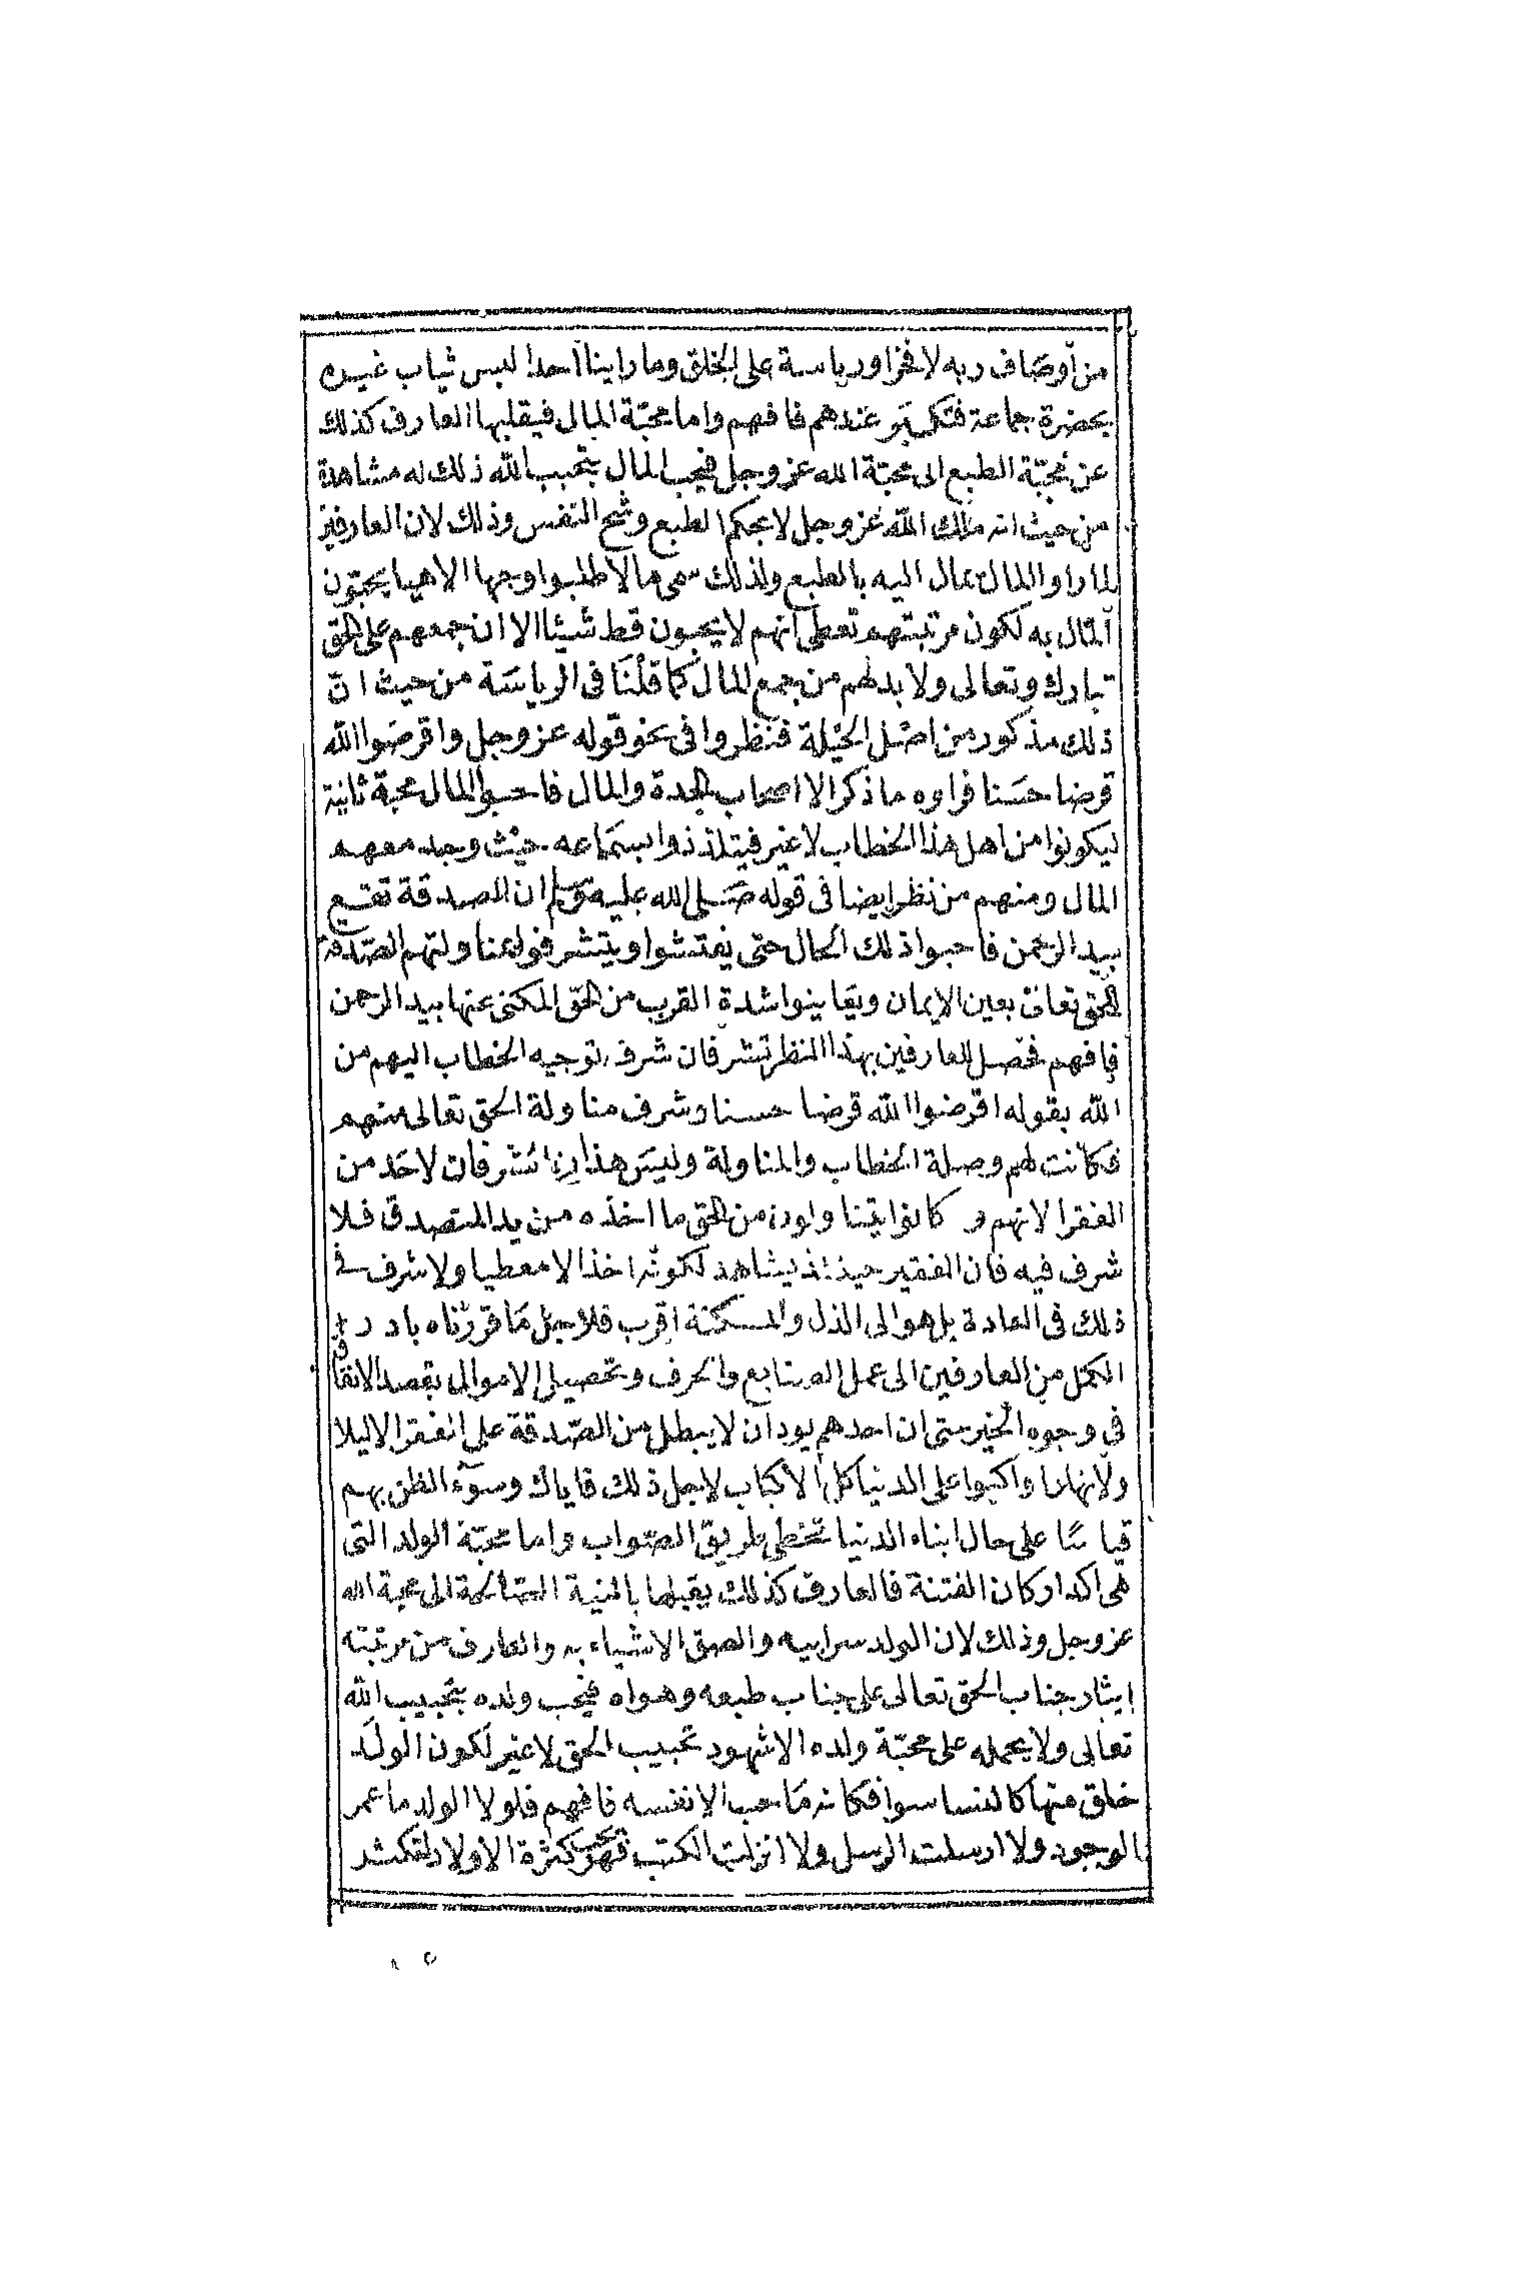 من أوصاف ربه لا فخرا ورياسة على الخلق وما راينا احدا لبس ثياب غيره
بحضرة جماعة فتكبر عندهم فافهم واما محبّة المال فيقلبها العارف كذلك
عن محبّة الطبع الى محبّة الله عز وجل فيحب المال بتحبيب الله ذلك له مشاهدة
من حيث انه مالك الله عز وجل لا بحكم الطبع وشح النفس وذلك لان العارفين
لما راوا المال يمال اليه بالطبع ولذلك سمى مالا طلبوا وجها الاهيا يحبّون
المال به لكون مرتبتهم تعطى انهم لا يحبون قط شيئا الا ان جمعهم على الحق
تبارك وتعالى ولا بد لهم من جمع المال كما قلنا فى الرياسة من حيث انّ
ذلك مذكور من اصل الجبلة فنظروا فى نحو قوله عز وجل واقرضوا الله
قرضا حسنا فراوه ما ذكر الا اصحاب الجدة والمال فاحبوا المال محبة ثانية
ليكونوا من اهل هذا الخطاب لا غير فيتلذذوا بسماعه حيث وجد معهم
المال ومنهم من نظر ايضا فى قوله صلى الله عليه وسلم ان الصدقة تقع
بيد الرحمن فاحبوا ذلك الحال حتى يفتشوا ويتشرفوا بمناولتهم الصّدقة
للحق تعالى بعين الايمان ويعاينوا شدة القرب من الحق المكنى عنها بيد الرحمن
فافهم فحصل للعارفين بهذا المنظر تشرفان شرف توجيه الخطاب اليهم من
الله بقوله اقرضوا الله قرضا حسنا وشرف مناولة الحق تعالى منهم
فكانت لهم وصلة الخطاب والمناولة وليس هذان التشرفان لاحد من
الفقرا لانهم و كانوا يتناولون من الحق ما اخذه من يد المتصدق فلا
شرف فيه فان الفقير حينئذ يشاهد لكونه اخذا لا معطيا ولا شرف فى
ذلك فى العادة بل هو الى الذل والمسكنة اقرب فلاجل ما قررناه بادر
الكمل من العارفين الى عمل الصنايع والحرف وتحصيل الاموال بقصد الانفاق
فى وجوه الخير حتى ان احدهم يود ان لا يبطل من الصّدقة على الفقرا لا ليلا
ولا نهارا واكبوا على الدنيا كل الاكباب لاجل ذلك فاياك وسوء الظن بهم
قياسا على حال ابناء الدنيا تخطى طريق الصواب واما محبّة الولد التى
هى اكد اركان الفتنة فالعارف كذلك يقبلها بالنية الصالحة الى محبة الله
عز وجل وذلك لان الولد سر ابيه والصق الاشياء به والعارف من مرتبته
ايثار جناب الحق تعالى على جناب طبعه وهواه فيحب ولده بتحبيب الله
تعالى ولا يحمله على محبّة ولده الا شهود تحبيب الحق لا غير لكون الولد
خلق منها كالنسا سوا فكانه ما حب الا نفسه فافهم فلولا الولد ما عمر
الوجود ولا ارسلت الرسل ولا انزلت الكتب فهو يحب كثرة الاولاد لتكثر